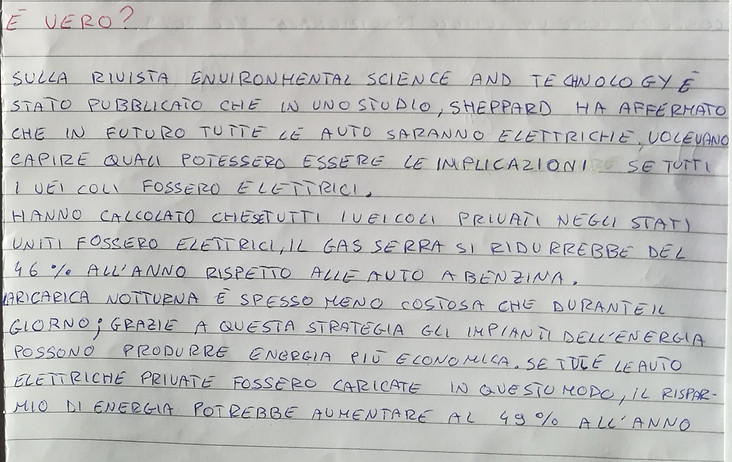 È VERO?
SULLA RIVISTA ENVIRONMENTAL SCIENCE AND TECHNOLOGY È
STATO PUBBLICATO CHE IN UNO STUDIO, SHEPPARD HA AFFERMATO
CHE IN FUTURO TUTTE LE AUTO SARANNO ELETTRICHE, VOLEVANO
CAPIRE QUALI POTESSERO ESSERE LE IMPLICAZIONI SE TUTTI
I VEICOLI FOSSERO ELETTRICI.
HANNO CALCOLATO CHE SE TUTTI I VEICOLI PRIVATI NEGLI STATI
UNITI FOSSERO ELETTRICI, IL GAS SERRA SI RIDURREBBE DEL
46 % ALL'ANNO RISPETTO ALLE AUTO A BENZINA.
LA RICARICA NOTTURNA È SPESSO MENO COSTOSA CHE DURANTE IL
GIORNO; GRAZIE A QUESTA STRATEGIA GLI IMPIANTI DELL'ENERGIA
POSSONO PRODURRE ENERGIA PIÙ ECONOMICA. SE TUTTE LE AUTO
ELETTRICHE PRIVATE FOSSERO CARICATE IN QUESTO MODO, IL RISPAR-
MIO DI ENERGIA POTREBBE AUMENTARE AL 49 % ALL'ANNO